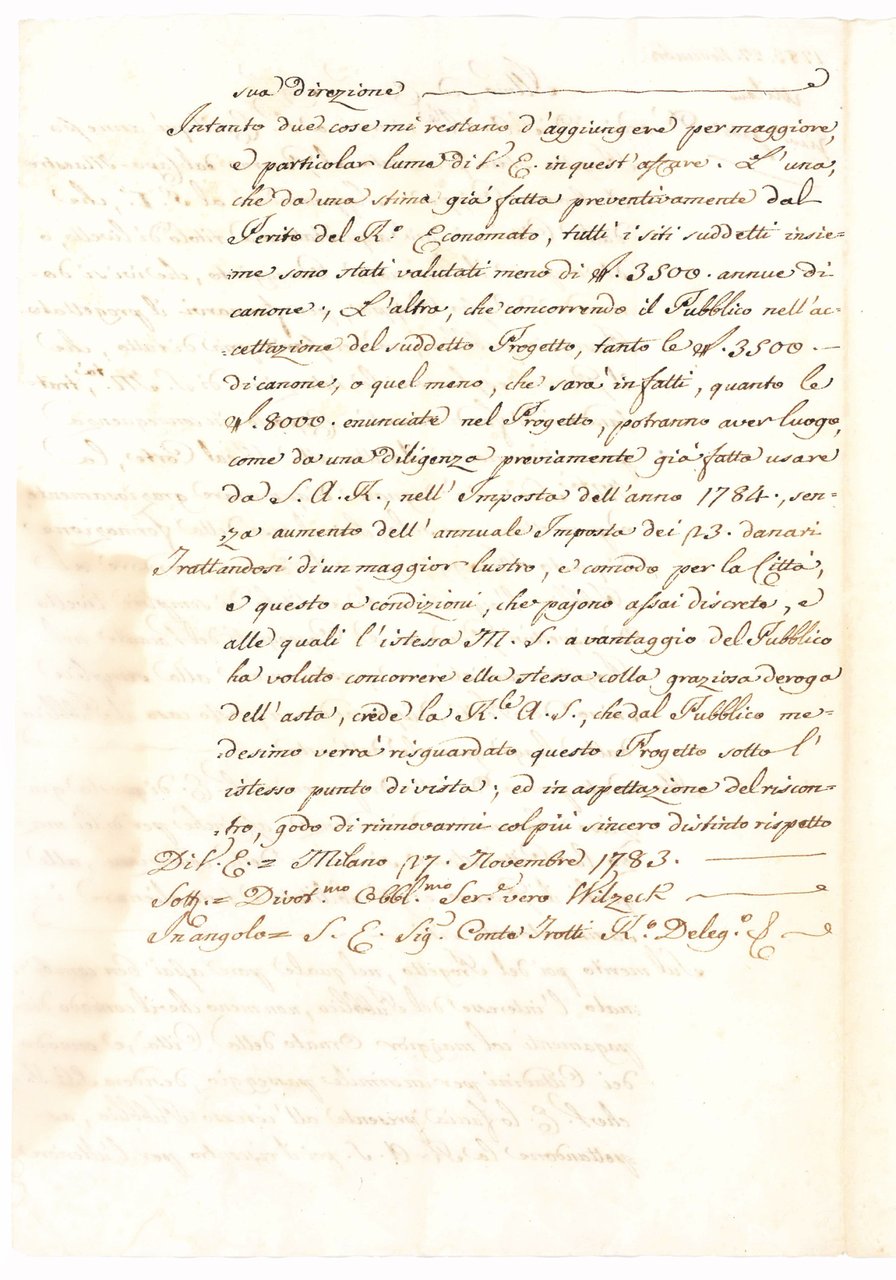 sua direzione
Intanto due cose mi restano d'aggiungere per maggiore,
e particolar lume di V. E. in quest'affare. L'una,
che da una stima già fatta preventivamente dal
Perito del R.º Economato, tutti i siti suddetti insie=
=me sono stati valutati meno di 3500. annue di
canone; L'altra, che concorrendo il Pubblico nell'ac=
=cettazione del suddetto Progetto, tanto le 3500.
di canone, o quel meno, che sarà in fatti, quanto le
8000. enunciate nel Progetto, potranno aver luogo,
come da una diligenza previamente già fatta usare
da S. A. R., nell'Imposta dell'anno 1784., sen=
=za aumento dell'annuale Imposta dei 23. danari
Trattandosi di un maggior lustro, e comodo per la Città,
e questo a condizioni, che pajono assai discrete, e
alle quali l'istessa M. S. a vantaggio del Pubblico
ha voluto concorrere ella stessa colla graziosa deroga
dell'asta, crede la R.le A. S., che dal Pubblico me=
=desimo verrà risguardato questo Progetto sotto l'
istesso punto di vista; ed in aspettazione del riscon=
=tro, godo di rinnovarmi col più sincero distinto rispetto
Di V. E. = Milano 27. Novembre 1783.
Sott. = Divot.mo Obbl.mo Ser.e vero Wilzeck
In angolo = S. E. Sig. Conte Trotti R.º Deleg.º